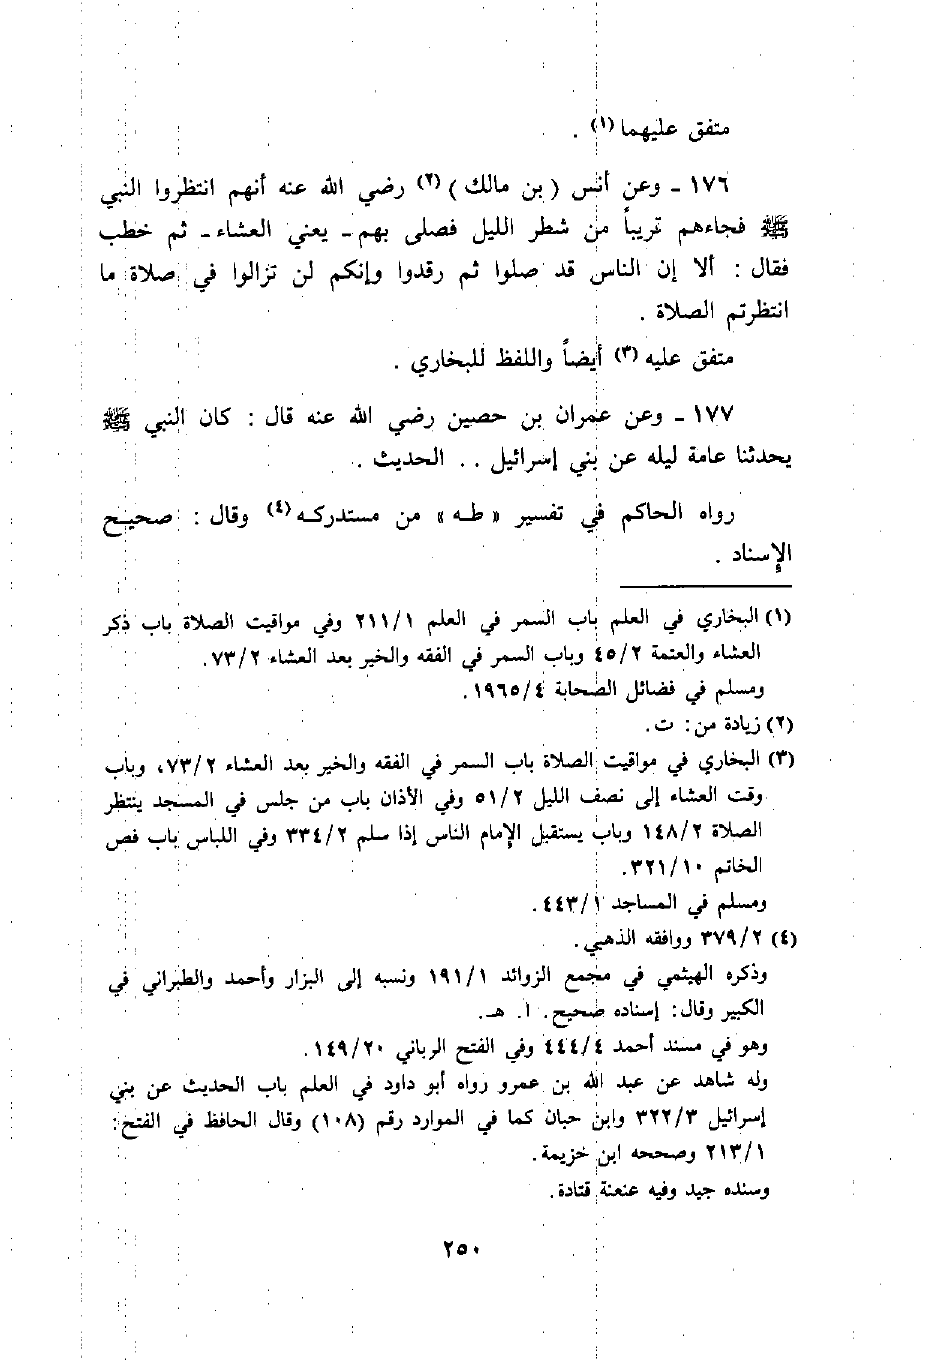 متفق عليهما (١) .
١٧٦ ـ وعن أنس ( بن مالك ) (٢) رضي الله عنه أنهم انتظروا النبي
ﷺ فجاءهم قريباً من شطر الليل فصلى بهم ـ يعني العشاء ـ ثم خطب
فقال : ألا إن الناس قد صلوا ثم رقدوا وإنكم لن تزالوا في صلاة ما
انتظرتم الصلاة .
متفق عليه (٣) أيضاً واللفظ للبخاري .
١٧٧ ـ وعن عمران بن حصين رضي الله عنه قال : كان النبي ﷺ
يحدثنا عامة ليله عن بني إسرائيل . . الحديث .
رواه الحاكم في تفسير « طـه » من مستدركـه (٤) وقال : صحيـح
الإسناد .
(١) البخاري في العلم باب السمر في العلم ٢١١/١ وفي مواقيت الصلاة باب ذكر
العشاء والعتمة ٤٥/٢ وباب السمر في الفقه والخير بعد العشاء ٧٣/٢.
ومسلم في فضائل الصحابة ١٩٦٥/٤.
(٢) زيادة من: ت.
(٣) البخاري في مواقيت الصلاة باب السمر في الفقه والخير بعد العشاء ٧٣/٢، وباب
وقت العشاء إلى نصف الليل ٥١/٢ وفي الأذان باب من جلس في المسجد ينتظر
الصلاة ١٤٨/٢ وباب يستقبل الإمام الناس إذا سلم ٣٣٤/٢ وفي اللباس باب فص
الخاتم ٣٢١/١٠.
ومسلم في المساجد ٤٤٣/١.
(٤) ٣٧٩/٢ ووافقه الذهبي.
وذكره الهيثمي في مجمع الزوائد ١٩١/١ ونسبه إلى البزار وأحمد والطبراني في
الكبير وقال: إسناده صحيح. ا. هـ.
وهو في مسند أحمد ٤٤٤/٤ وفي الفتح الرباني ١٤٩/٢٠.
وله شاهد عن عبد الله بن عمرو رواه أبو داود في العلم باب الحديث عن بني
إسرائيل ٣٢٢/٣ وابن حبان كما في الموارد رقم (١٠٨) وقال الحافظ في الفتح:
٢١٣/١ وصححه ابن خزيمة.
وسنده جيد وفيه عنعنة قتادة.
٢٥٠